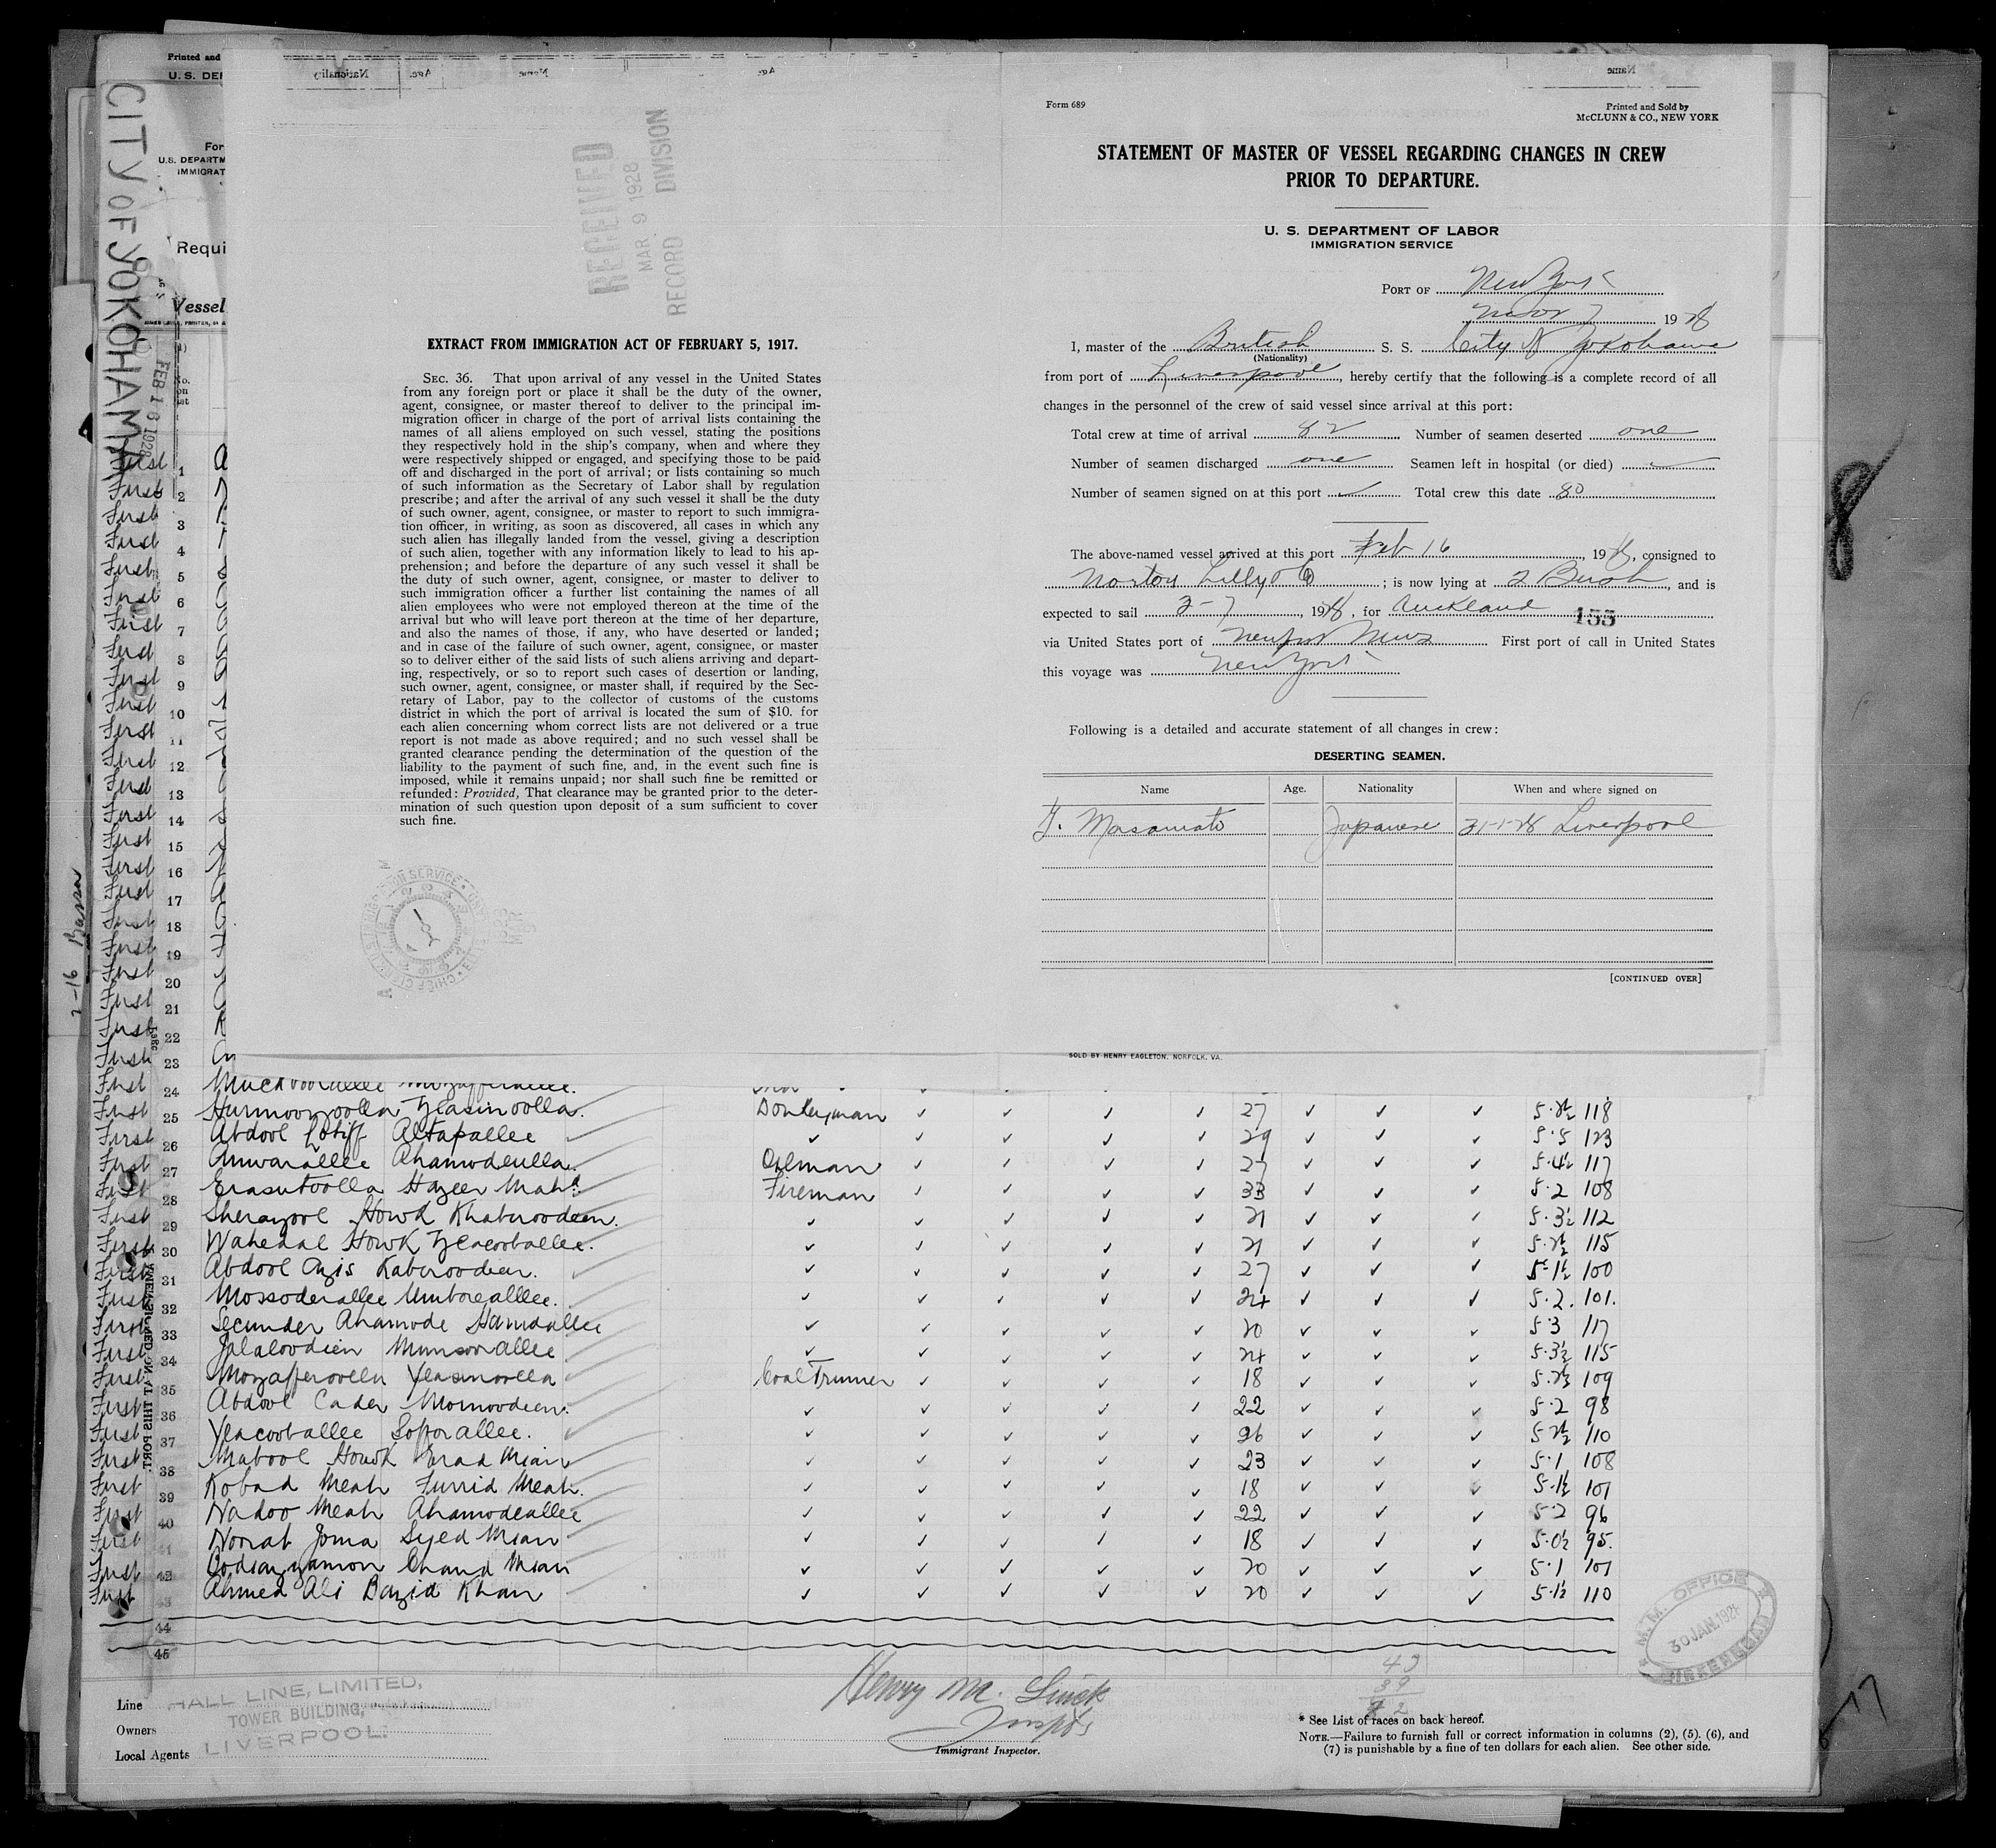 Printed and
U. S. DEP
CITY OF YOKOHAMA
For
U.S. DEPARTM
IMMIGRAT
Requi
Vessel
FEB 16 1928
2-16
RECEIVED
MAR 9 1928
RECORD DIVISION
EXTRACT FROM IMMIGRATION ACT OF FEBRUARY 5, 1917.
SEC. 36. That upon arrival of any vessel in the United States
from any foreign port or place it shall be the duty of the owner,
agent, consignee, or master thereof to deliver to the principal im-
migration officer in charge of the port of arrival lists containing the
names of all aliens employed on such vessel, stating the positions
they respectively hold in the ship's company, when and where they
were respectively shipped or engaged, and specifying those to be paid
off and discharged in the port of arrival; or lists containing so much
of such information as the Secretary of Labor shall by regulation
prescribe; and after the arrival of any such vessel it shall be the duty
of such owner, agent, consignee, or master to report to such immigra-
tion officer, in writing, as soon as discovered, all cases in which any
such alien has illegally landed from the vessel, giving a description
of such alien, together with any information likely to lead to his ap-
prehension; and before the departure of any such vessel it shall be
the duty of such owner, agent, consignee, or master to deliver to
such immigration officer a further list containing the names of all
alien employees who were not employed thereon at the time of the
arrival but who will leave port thereon at the time of her departure,
and also the names of those, if any, who have deserted or landed;
and in case of the failure of such owner, agent, consignee, or master
so to deliver either of the said lists of such aliens arriving and depart-
ing, respectively, or so to report such cases of desertion or landing,
such owner, agent, consignee, or master shall, if required by the Sec-
retary of Labor, pay to the collector of customs of the customs
district in which the port of arrival is located the sum of $10. for
each alien concerning whom correct lists are not delivered or a true
report is not made as above required; and no such vessel shall be
granted clearance pending the determination of the question of the
liability to the payment of such fine, and, in the event such fine is
imposed, while it remains unpaid; nor shall such fine be remitted or
refunded: Provided, That clearance may be granted prior to the deter-
mination of such question upon deposit of a sum sufficient to cover
such fine.
Form 689
Printed and Sold by
McCLUNN & CO., NEW YORK
STATEMENT OF MASTER OF VESSEL REGARDING CHANGES IN CREW
PRIOR TO DEPARTURE.
U. S. DEPARTMENT OF LABOR
IMMIGRATION SERVICE
PORT OF New York
Mar 7 1928
I, master of the British S. S. City of Yokohama
(Nationality)
from port of Liverpool, hereby certify that the following is a complete record of all
changes in the personnel of the crew of said vessel since arrival at this port:
Total crew at time of arrival 82 Number of seamen deserted one
Number of seamen discharged one Seamen left in hospital (or died)
Number of seamen signed on at this port Total crew this date 80
The above-named vessel arrived at this port Feb 16, 1928, consigned to
Norton Lilly & Co; is now lying at 2 Bush, and is
expected to sail 3-7, 1928, for Auckland 155
via United States port of Newport News First port of call in United States
this voyage was New York
Following is a detailed and accurate statement of all changes in crew:
DESERTING SEAMEN.
Name Age. Nationality When and where signed on
Y. Masamato Japanese 31-1-28 Liverpool
[CONTINUED OVER]
SOLD BY HENRY EAGLETON, NORFOLK, VA.
First 1
First 2
First 3
First 4
First 5
First 6
First 7
First 8
First 9
First 10
First 11
First 12
First 13
First 14
First 15
First 16
First 17
First 18
First 19
First 20
First 21
First 22
First 23
First 24
First 25 Hurmoozoolla Yeasinoolla. Donkeyman ✓ ✓ ✓ ✓ 27 ✓ ✓ ✓ 5·2½ 118
First 26 Abdool Lotiff Altapallee ✓ ✓ ✓ ✓ ✓ 29 ✓ ✓ ✓ 5·5 123
First 27 Anwarallee Ahamodeulla. Oilman ✓ ✓ ✓ ✓ 27 ✓ ✓ ✓ 5·4½ 117
First 28 Erasutoolla Hazeer Mahd. Fireman ✓ ✓ ✓ ✓ 33 ✓ ✓ ✓ 5·2 108
First 29 Sherazool Howk Khaberoodeen. ✓ ✓ ✓ ✓ ✓ 21 ✓ ✓ ✓ 5·3½ 112
First 30 Wahedal Howk Yeacooballee. ✓ ✓ ✓ ✓ ✓ 21 ✓ ✓ ✓ 5·2½ 115
First 31 Abdool Azis Kaberoodeen. ✓ ✓ ✓ ✓ ✓ 27 ✓ ✓ ✓ 5·1½ 100
First 32 Mossoderallee Umborealllee. ✓ ✓ ✓ ✓ ✓ 24 ✓ ✓ ✓ 5·2. 101.
First 33 Secunder Ahamode Hamdallee ✓ ✓ ✓ ✓ ✓ 20 ✓ ✓ ✓ 5·3 117
First 34 Jalaloodien Munsoorallee ✓ ✓ ✓ ✓ ✓ 24 ✓ ✓ ✓ 5·3½ 115
First 35 Mozafferoolla Yeasinoolla Coal Trimmer ✓ ✓ ✓ ✓ 18 ✓ ✓ ✓ 5·2½ 109
First 36 Abdool Cader Momoodeen. ✓ ✓ ✓ ✓ ✓ 22 ✓ ✓ ✓ 5·2 98
First 37 Yeacooballee Soforallee. ✓ ✓ ✓ ✓ ✓ 26 ✓ ✓ ✓ 5·2½ 110
First 38 Mabool Howk Erad Mian ✓ ✓ ✓ ✓ ✓ 23 ✓ ✓ ✓ 5·1 108
First 39 Kobad Meah Furrid Meah. ✓ ✓ ✓ ✓ ✓ 18 ✓ ✓ ✓ 5·1½ 101
First 40 Nadoo Meah Ahamodeallee ✓ ✓ ✓ ✓ ✓ 22 ✓ ✓ ✓ 5·2 96
First 41 Noorat Joma Syed Mian ✓ ✓ ✓ ✓ ✓ 18 ✓ ✓ ✓ 5·0½ 95.
First 42 Bodiazzamon Chand Mian ✓ ✓ ✓ ✓ ✓ 20 ✓ ✓ ✓ 5·1 101
First 43 Ahmed Ali Bazid Khan ✓ ✓ ✓ ✓ ✓ 20 ✓ ✓ ✓ 5·1½ 110
44
45
M.M. OFFICE
30 JAN. 1928
BIRKENHEAD
Line HALL LINE, LIMITED,
Owners TOWER BUILDING,
Local Agents LIVERPOOL.
Immigrant Inspector.
43
39
82
* See List of races on back hereof.
NOTE.—Failure to furnish full or correct information in columns (2), (5), (6), and
(7) is punishable by a fine of ten dollars for each alien. See other side.